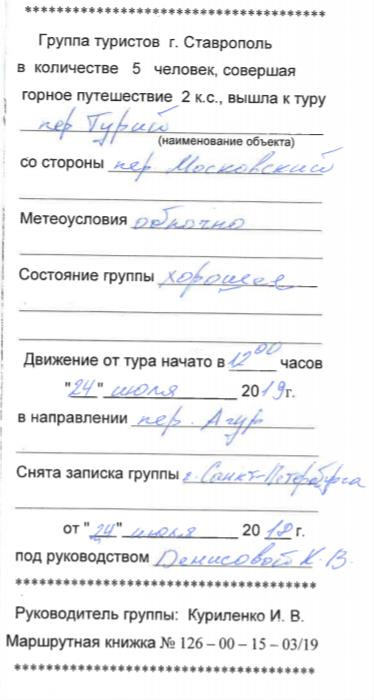 ********************************
Группа туристов г. Ставрополь
в количестве 5 человек, совершая
горное путешествие 2 к.с., вышла к туру
пер Турий
(наименование объекта)
со стороны пер Московский
Метеоусловия облачно
Состояние группы хорошее
Движение от тура начато в 12 00 часов
"24" июля 2019г.
в направлении пер. Агур
Снята записка группы г. Санкт-Петербурга
от "24" июля 2018 г.
под руководством Денисовой К. В.
********************************
Руководитель группы: Куриленко И. В.
Маршрутная книжка № 126 – 00 – 15 – 03/19
********************************